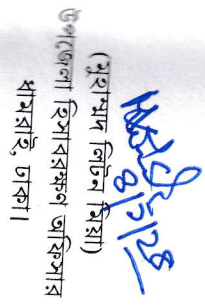 (মুহাম্মদ লিটন মিয়া)
উপজেলা হিসাবরক্ষণ অফিসার
ধামরাই, ঢাকা।